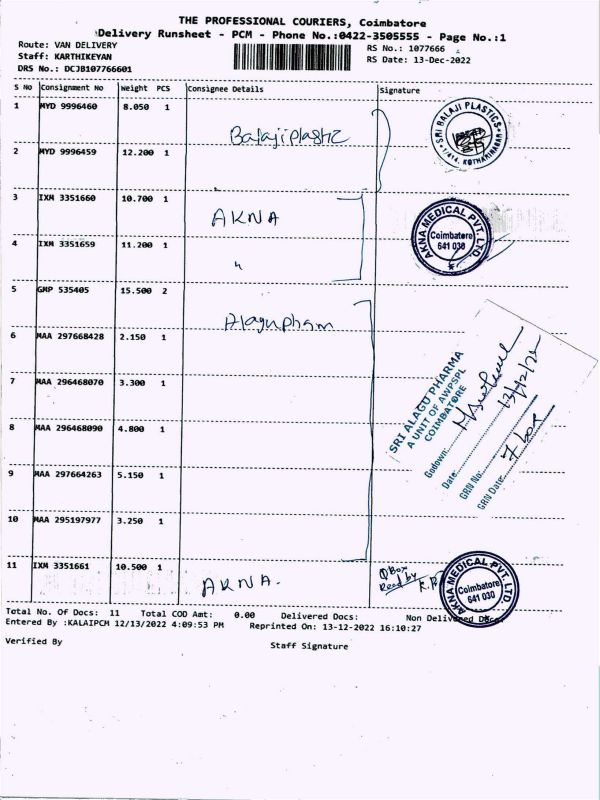 THE PROFESSIONAL COURIERS, Coimbatore
Delivery Runsheet - PCM - Phone No.:0422-3505555 - Page No.:1
Route: VAN DELIVERY
RS No.: 1077666
Staff: KARTHIKEYAN
RS Date: 13-Dec-2022
DRS No.: DCJB107766601
S No Consignment No Weight PCS Consignee Details Signature
1 MYD 9996460 8.050 1
Balajiplastic
SRI BALAJI PLASTICS
2 MYD 9996459 12.200 1
3 IXM 3351660 10.700 1
AKNA
AKNA MEDICAL PVT. LTD.
Coimbatore
641 030
4 IXM 3351659 11.200 1
"
5 GMP 535405 15.500 2
Alagu pham
6 MAA 297668428 2.150 1
7 MAA 296468070 3.300 1
8 MAA 296468090 4.800 1
9 MAA 297664263 5.150 1
10 MAA 295197977 3.250 1
SRI ALAGU PHARMA
A UNIT OF AWPSPL
COIMBATORE
Godown:
Date: 13/12/22
GRN No:
GRN Date:
11 IXM 3351661 10.500 1
AKNA.
AKNA MEDICAL PVT. LTD.
Coimbatore
641 030
Total No. Of Docs: 11 Total COD Amt: 0.00 Delivered Docs: Non Delivered Docs:
Entered By :KALAIPCM 12/13/2022 4:09:53 PM Reprinted On: 13-12-2022 16:10:27
Verified By
Staff Signature